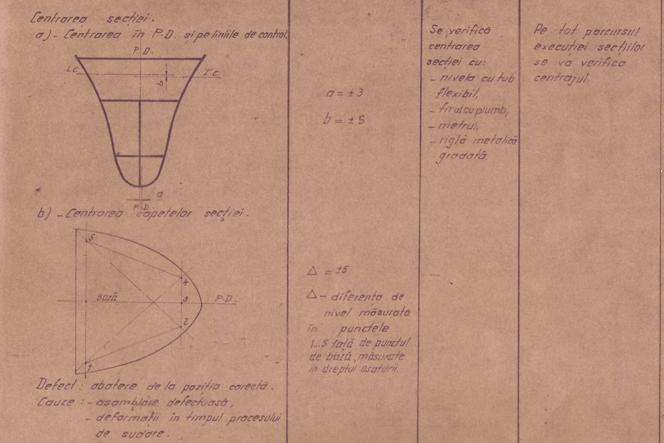 Centrarea secției.
a) - Centrarea în P.D. și pe liniile de control.
P.D.
L.C. L.C.
b
a
P.D.
b) - Centrarea capetelor secției.
5
4
bază 3 P.D.
2
1
Defect: abatere de la poziția corectă.
Cauze: - asamblare defectuasă,
- deformații în timpul procesului
de sudare.
a = ±3
b = ±5
Δ = ±5
Δ - diferența de
nivel măsurata
în punctele
1...5 față de punctul
de bază, măsurate
în dreptul osaturii.
Se verifică
centrarea
secției cu:
- nivela cu tub
flexibil,
- firul cu plumb,
- metrul,
- riglă metalică
gradată.
Pe tot parcursul
execuției secțiilor
se va verifica
centrajul.